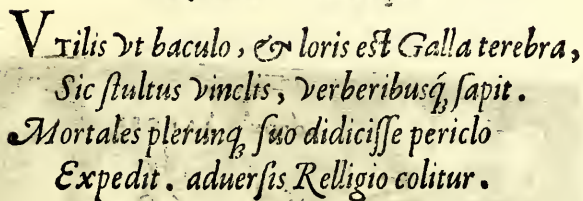 VTilis vt baculo, & loris est Galla terebra,
Sic ſtultus vinclis, verberibusq́ꝫ ſapit.
Mortales plerunqꝫ ſuo didiciſſe periclo
Expedit. aduerſis Relligio colitur.